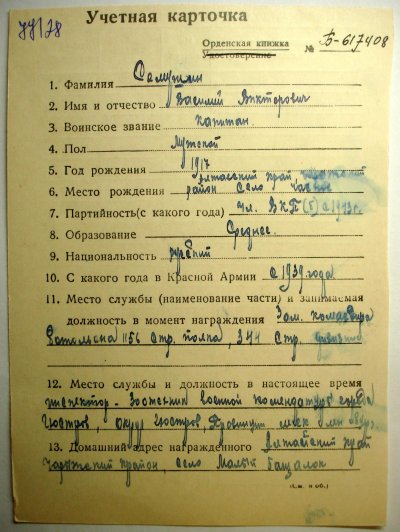 Учетная карточка
Орденская книжка
Удостоверение № Б-617408
1. Фамилия
2. Имя и отчество Василий Викторович
3. Воинское звание капитан
4. Пол Мужской
5. Год рождения 1917
Алтайский край
6. Место рождения район село
7. Партийность(с какого года) чл. ВКП(б) с 1943г.
8. Образование Среднее.
9. Национальность русский
10. С какого года в Красной Армии с 1939 года
11. Место службы (наименование части) и занимаемая
должность в момент награждения Зам. командира
батальона 1156 стр. полка, 344 стр. дивизии
12. Место службы и должность в настоящее время
военной комендатуры города
Гюстров, округ Гюстров, Провинции
13. Домашний адрес награжденного Алтайский край
район, село Малый Бащалок
(См. н об.)